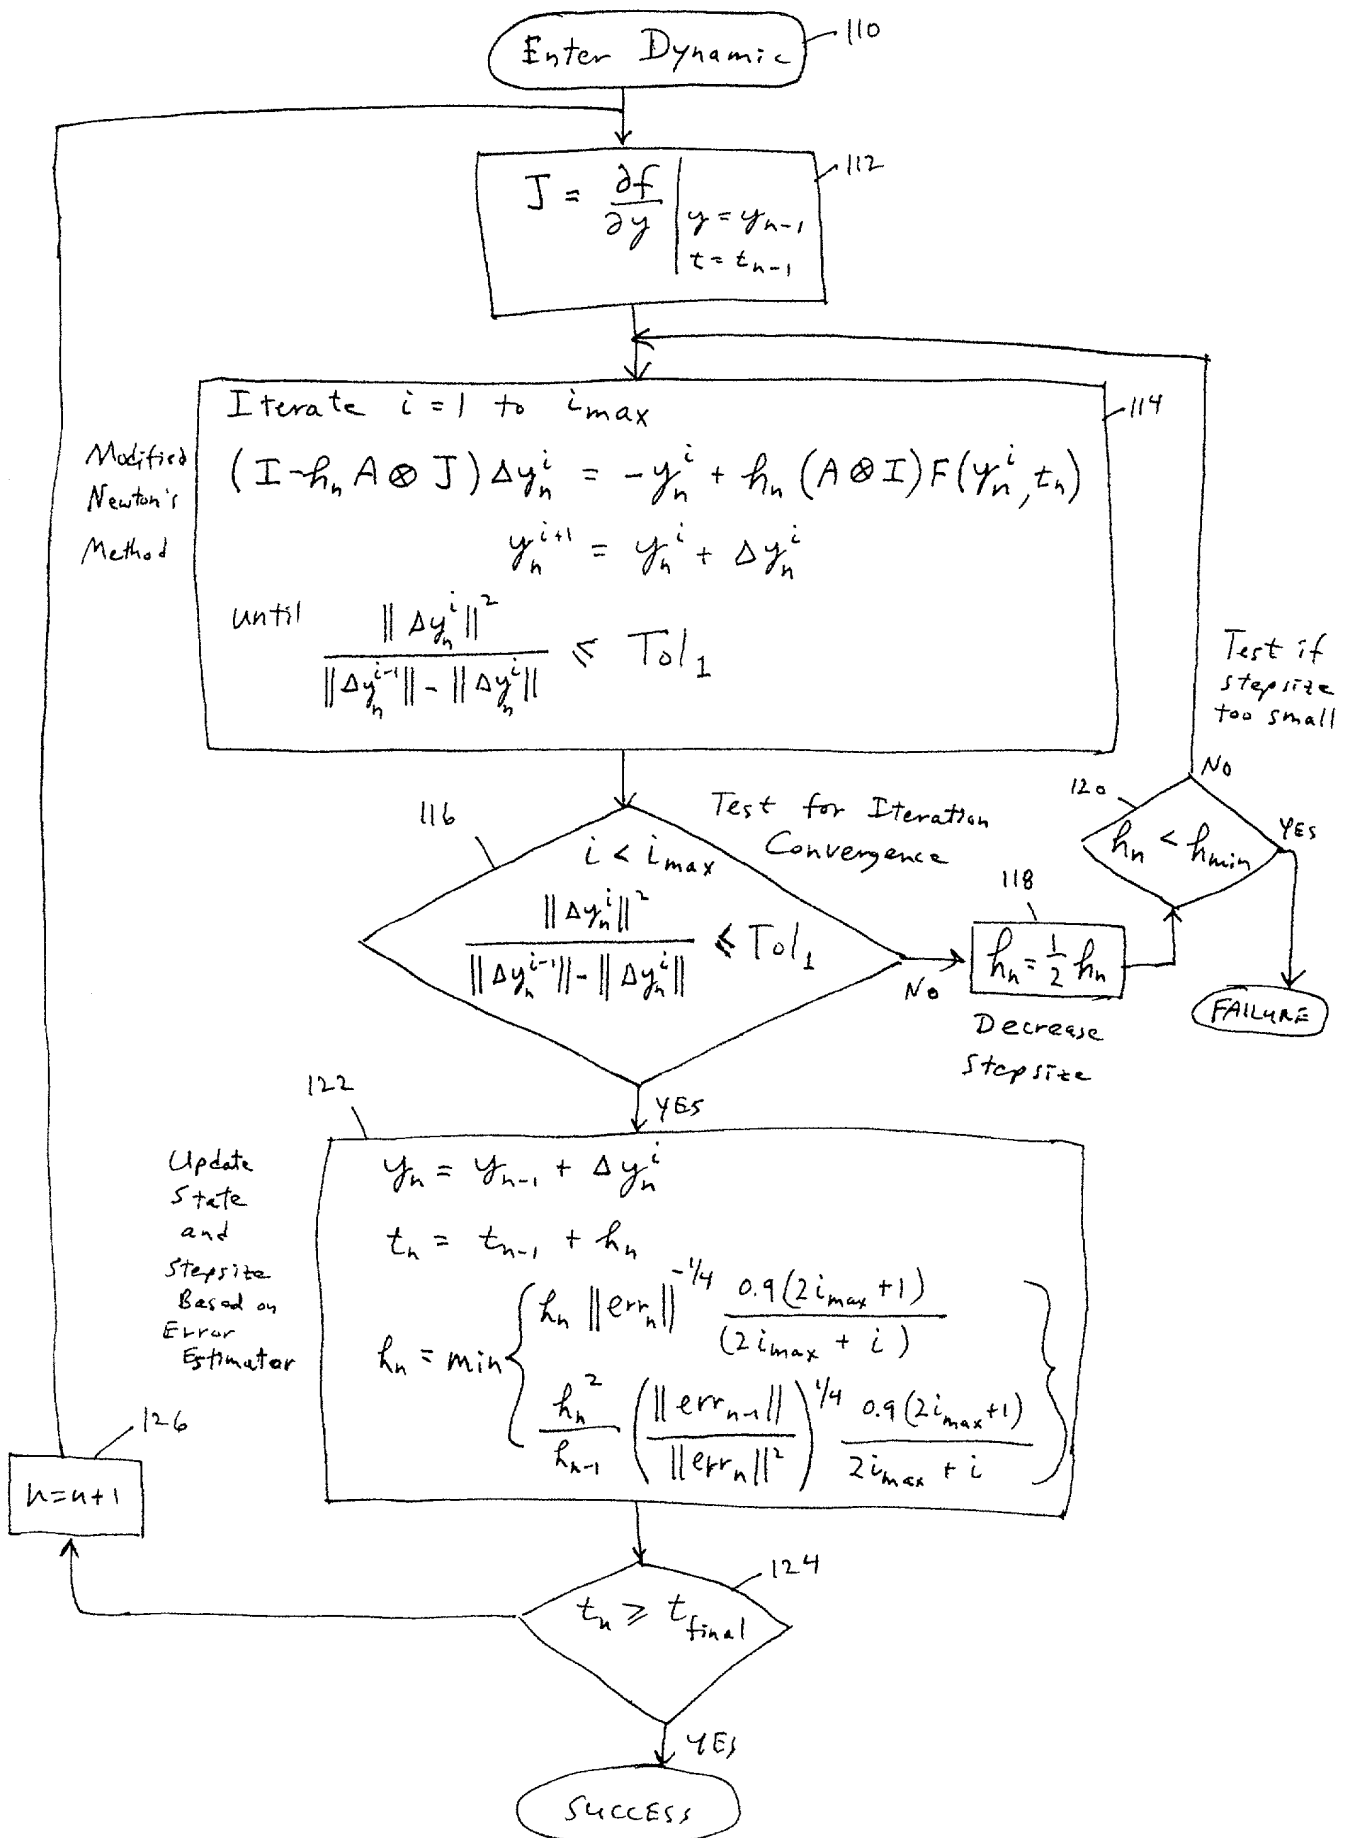 Enter Dynamic
110
112
J = ∂f/∂y | y = yₙ₋₁
t = tₙ₋₁
114
Iterate i = 1 to i_max
Modified
Newton's
Method
(I - hₙ A ⊗ J) Δyₙⁱ = -yₙⁱ + hₙ (A ⊗ I) F(yₙⁱ, tₙ)
yₙⁱ⁺¹ = yₙⁱ + Δyₙⁱ
until ‖Δyₙⁱ‖² / (‖Δyₙⁱ⁻¹‖ - ‖Δyₙⁱ‖) ≤ Tol₁
Test if
stepsize
too small
NO
120
hₙ < h_min
YES
FAILURE
116
Test for Iteration
Convergence
i < i_max
‖Δyₙⁱ‖² / (‖Δyₙⁱ⁻¹‖ - ‖Δyₙⁱ‖) ≤ Tol₁
NO
118
hₙ = ½ hₙ
Decrease
Stepsize
YES
122
Update
State
and
Stepsize
Based on
Error
Estimator
yₙ = yₙ₋₁ + Δyₙⁱ
tₙ = tₙ₋₁ + hₙ
hₙ = min { hₙ ‖errₙ‖^(-1/4) 0.9(2i_max + 1) / (2i_max + i)
hₙ²/hₙ₋₁ (‖errₙ₋₁‖ / ‖errₙ‖²)^(1/4) 0.9(2i_max + 1) / 2i_max + i }
126
n = n+1
124
tₙ ≥ t_final
YES
SUCCESS